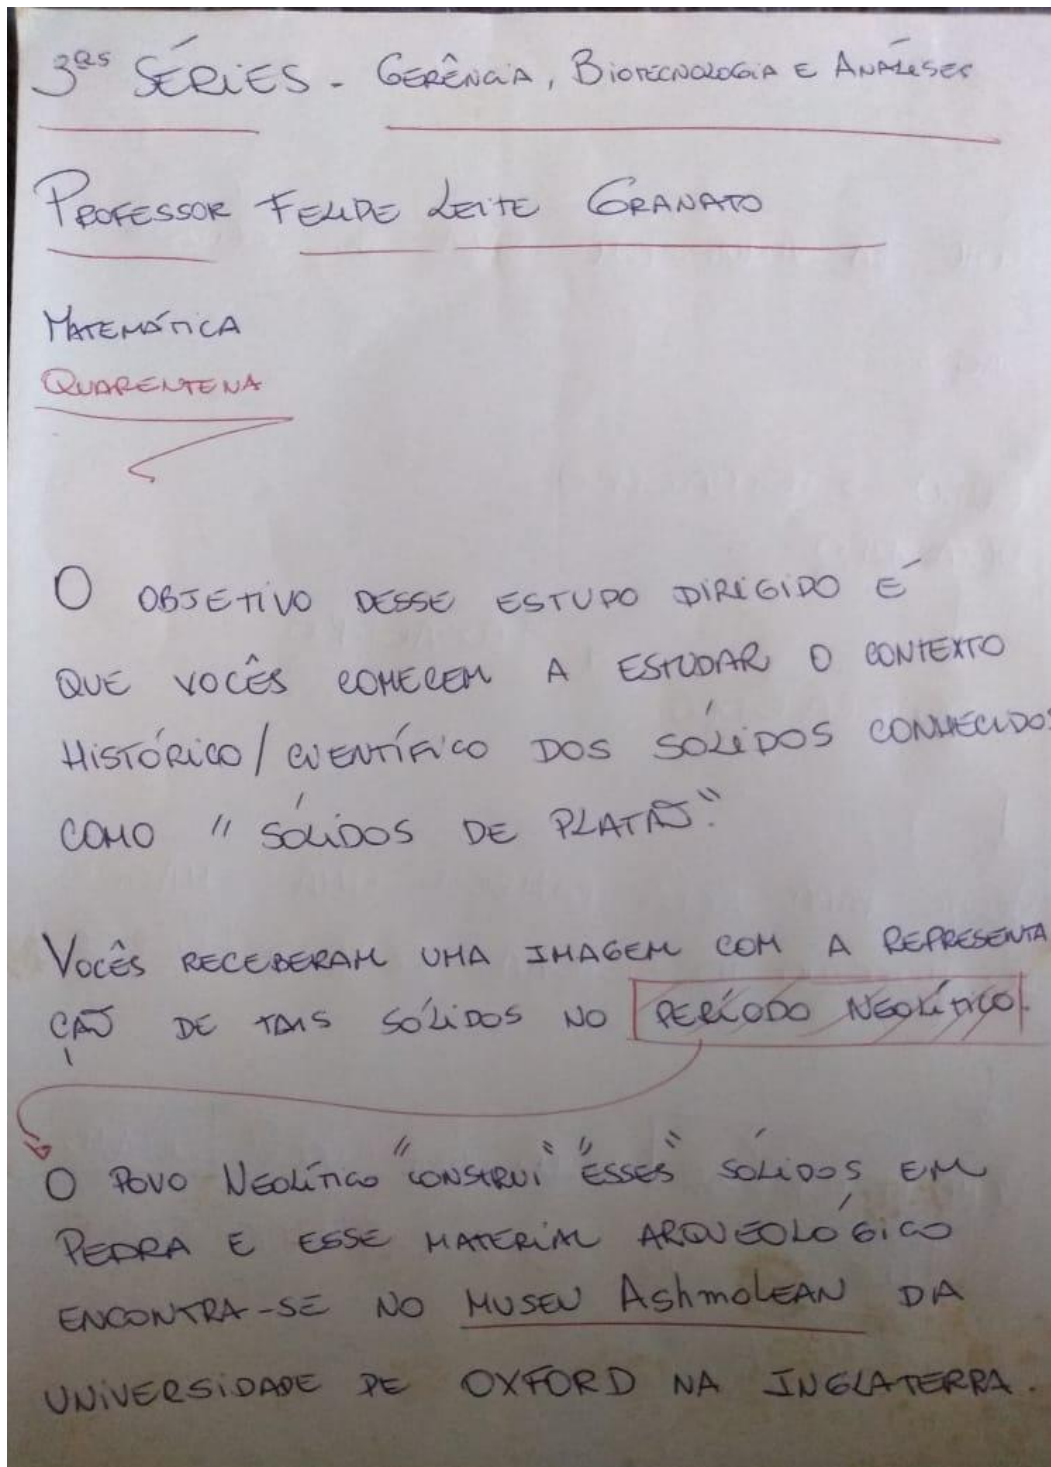 3ªs SÉRIES - GERÊNCIA, BIOTECNOLOGIA E ANÁLISES
PROFESSOR FELIPE LEITE GRANATO
MATEMÁTICA
QUARENTENA
O OBJETIVO DESSE ESTUDO DIRIGIDO É
QUE VOCÊS COMECEM A ESTUDAR O CONTEXTO
HISTÓRICO/CIENTÍFICO DOS SÓLIDOS CONHECIDOS
COMO "SÓLIDOS DE PLATÃO".
VOCÊS RECEBERAM UMA IMAGEM COM A REPRESENTA
ÇÃO DE TAIS SÓLIDOS NO PERÍODO NEOLÍTICO.
O POVO NEOLÍTICO "CONSTRUI" "ESSES" SÓLIDOS EM
PEDRA E ESSE MATERIAL ARQUEOLÓGICO
ENCONTRA-SE NO MUSEU AShmoLEAN DA
UNIVERSIDADE DE OXFORD NA INGLATERRA.